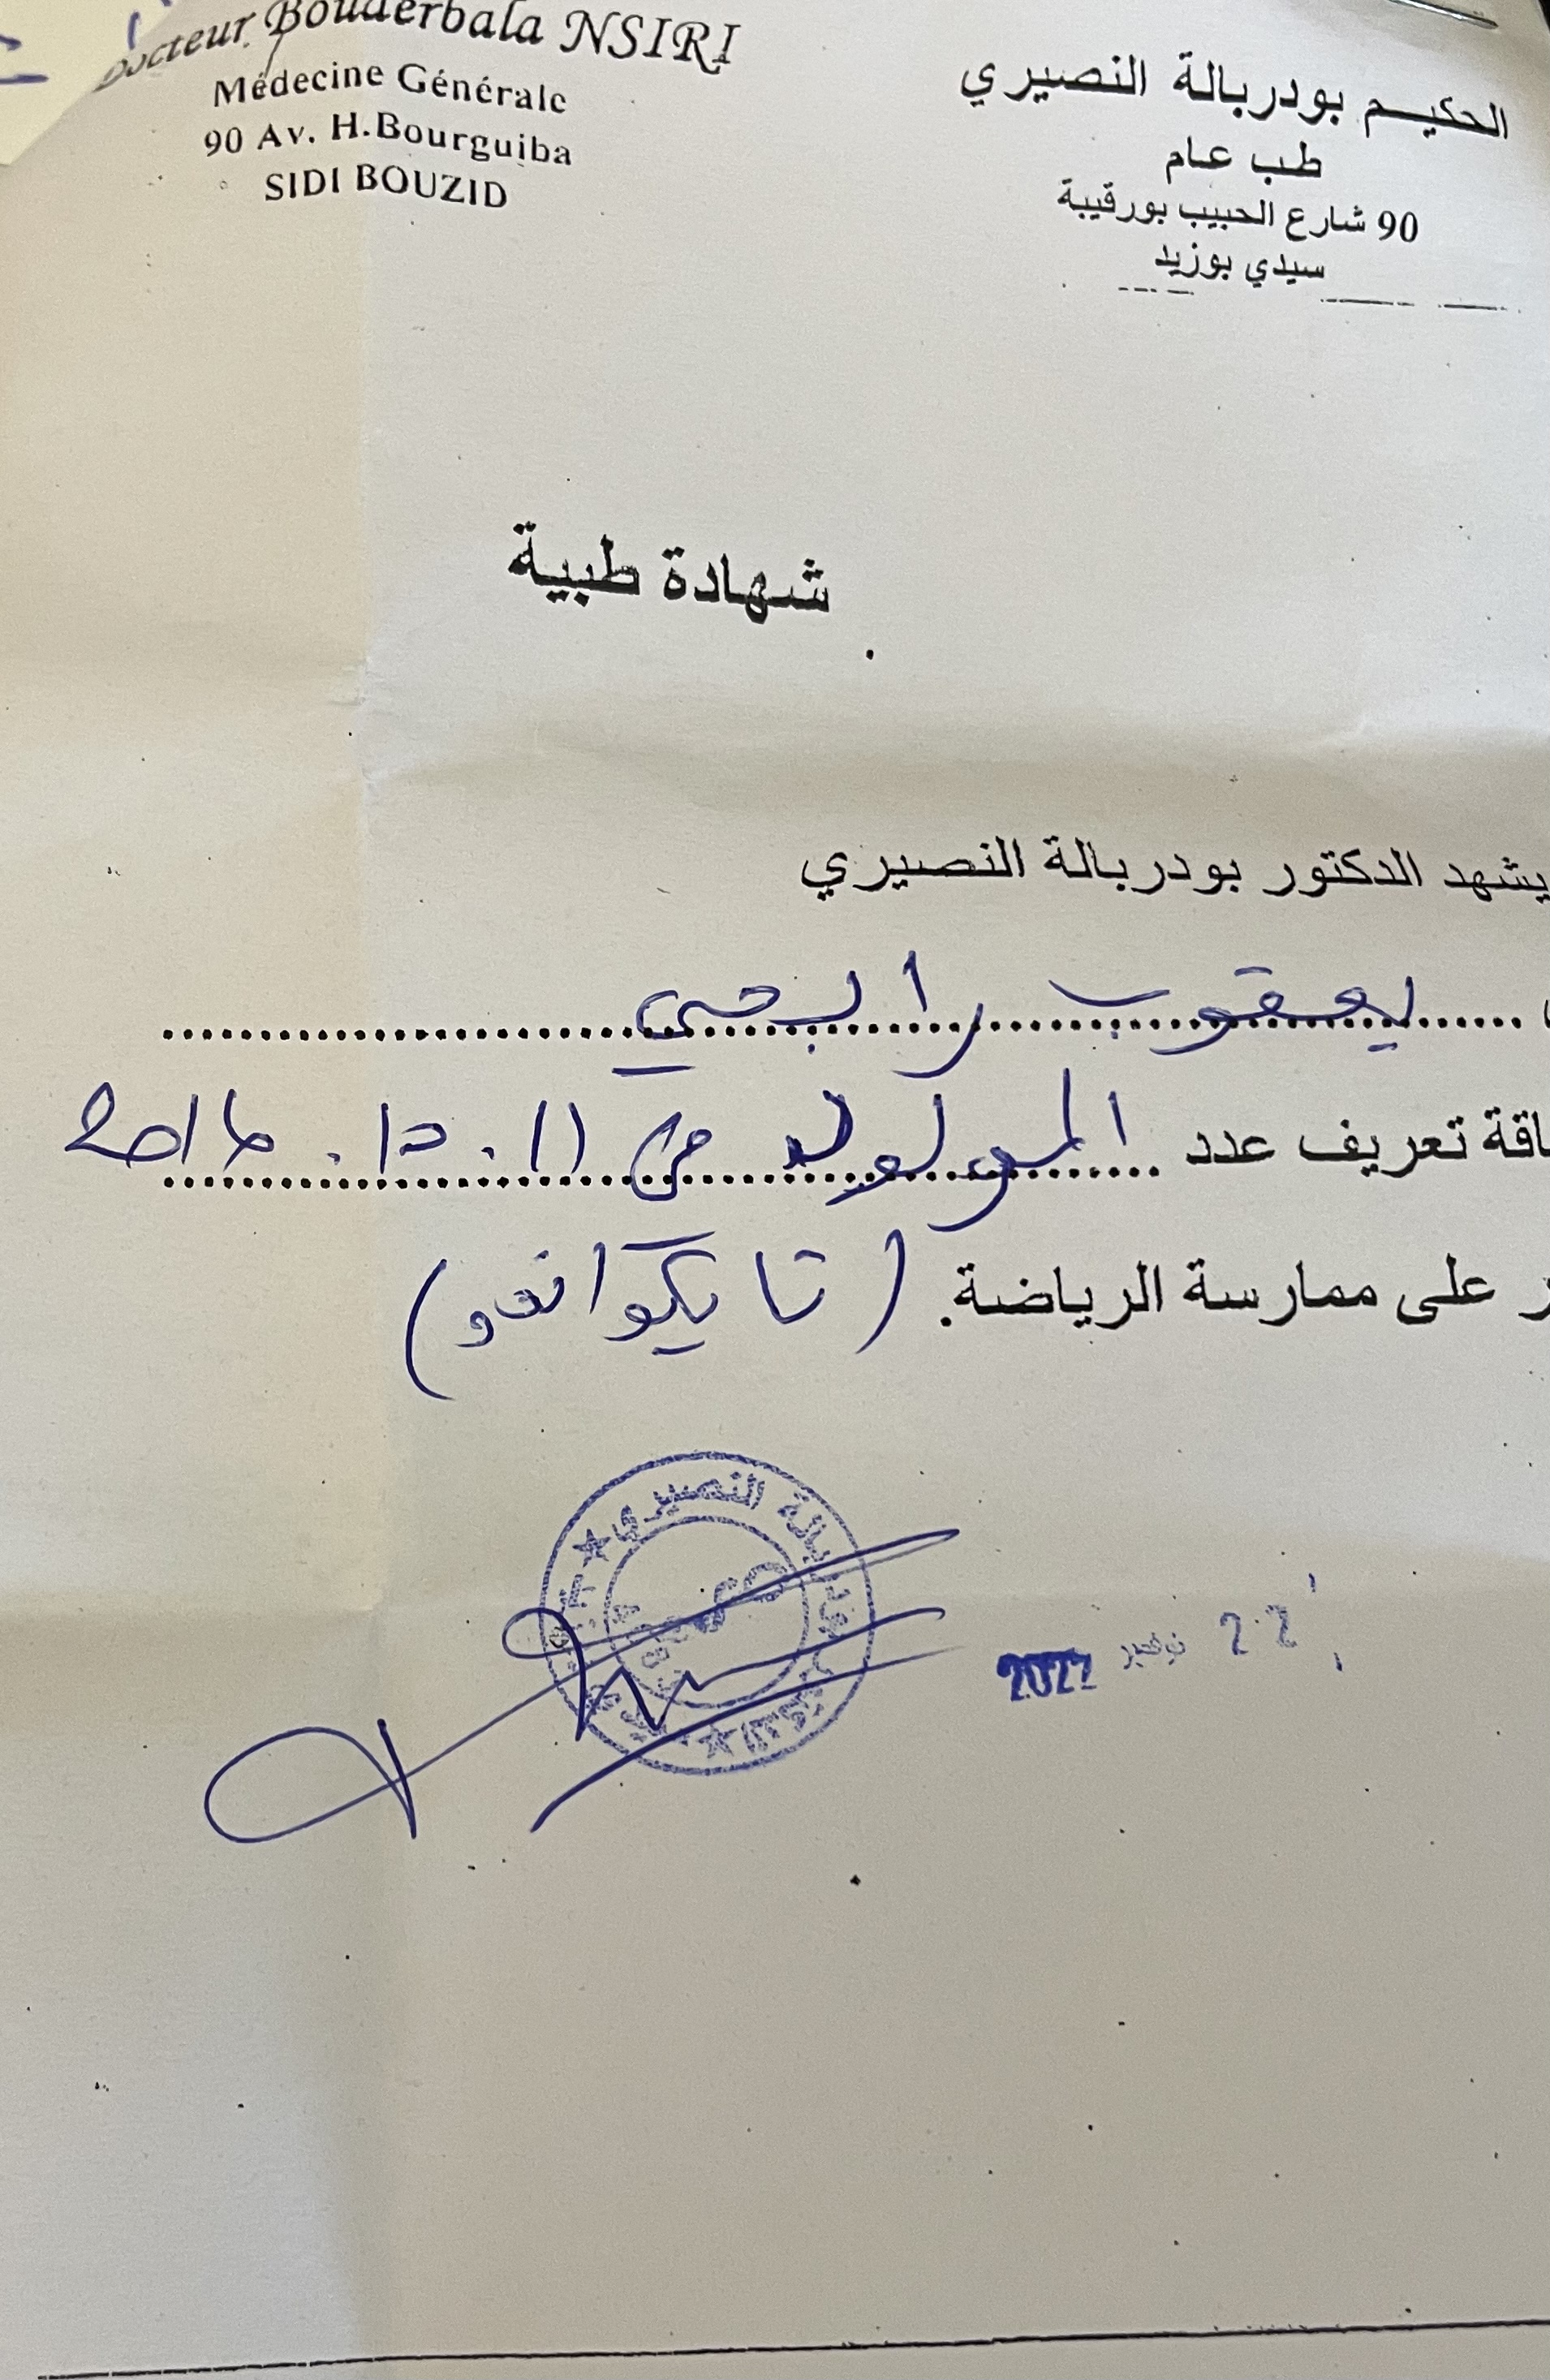 Docteur Bouderbala NSIRI
Médecine Générale
90 Av. H.Bourguiba
SIDI BOUZID
الحكيم بودربالة النصيري
طب عام
90 شارع الحبيب بورقيبة
سيدي بوزيد
شهادة طبية
يشهد الدكتور بودربالة النصيري
يعقوب رابحي
تعريف عدد المولود في
على ممارسة الرياضة. (تايكواندو)
بودربالة النصيري
22 نوفمبر 2022